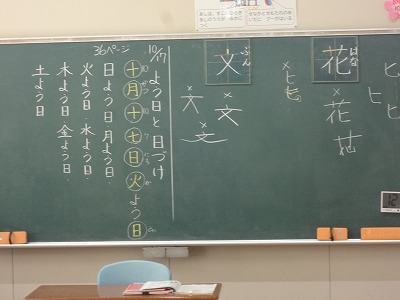 ヒ
ヒ
ヒ
花 はな
×
花
花
文 ぶん
×
文
×
×
文
10/17
よう日と日づけ
36ページ
十月十七日火よう日
日よう日.月よう日.
火よう日.水よう日.
木よう日.金よう日.
土よう日